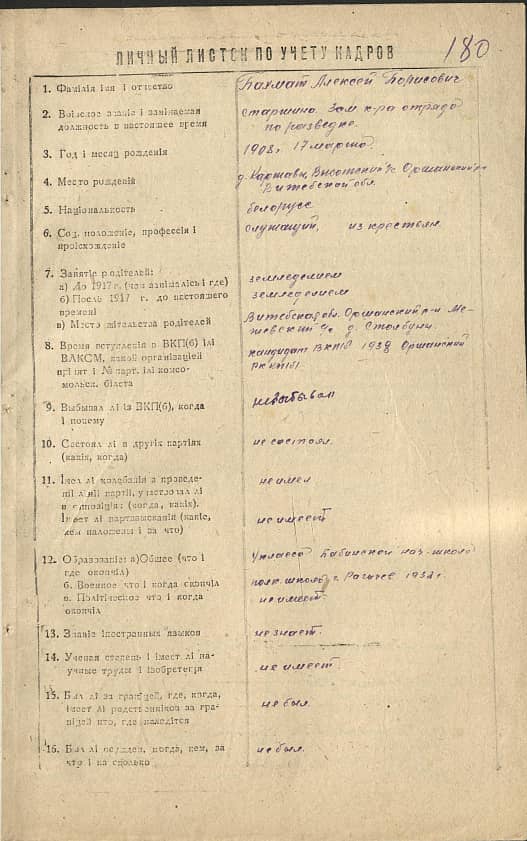 180
ЛИЧНЫЙ ЛИСТОК ПО УЧЕТУ КАДРОВ
1. Фамілія імя і отчество
Бахмат Алексей Борисович
2. Воінское званіе і занімаемая
должность в настоящее время
старшина. Зам. к-ра отряда
по разведке.
3. Год і месяц рожденія
1908, 17 марта.
4. Место рожденій
Витебской обл.
5. Національность
белорусс
6. Соц. положеніе, профессія і
проісхожденіе
служащий, из крестьян.
7. Занятіе родітелей:
а) До 1917 г. (чем занімалісь і где)
б) После 1917 г. до настоящего
времені
в) Место жітельства родітелей
земледелием
земледелием
Витебская обл. Оршанский р-н Ме-
жевский с/с д. Столбуны
8. Время вступленія в ВКП(б) ілі
ВЛКСМ, какой организаціей
прінят і № парт. ілі комсо-
мольск. білета
кандидат ВКПб 1938 Оршанский
РК КПб/Б
9. Выбывал лі із ВКП(б), когда
і почему
не выбывал
10. Состоял лі в другіх партіях
(какіх, когда)
не состоял.
11. Імел лі колебанія в проведе-
ніі лініі партіі, участвовал лі
в оппозіціях (когда, какіх).
Імеет лі партвзысканія (какіе,
кем наложены і за что)
не имел
не имеет
12. Образованіе: а) Общее (что і
где окончіл)
б. Военное что і когда окончіл
в. Політіческое что і когда
окончіл
4 класса Бабинской нач. школы
полк. школу г. Рогачев 1932 г.
не имеет.
13. Знаніе іностранных языков
не знает.
14. Ученая степень і імеет лі на-
учные труды і ізобретенія
не имеет.
15. Был лі за граніцей, где, когда,
імеет лі родственніков за гра-
ніцей кто, где находітся
не был.
16. Был лі осужден, когда, кем, за
что і на сколько
не был.